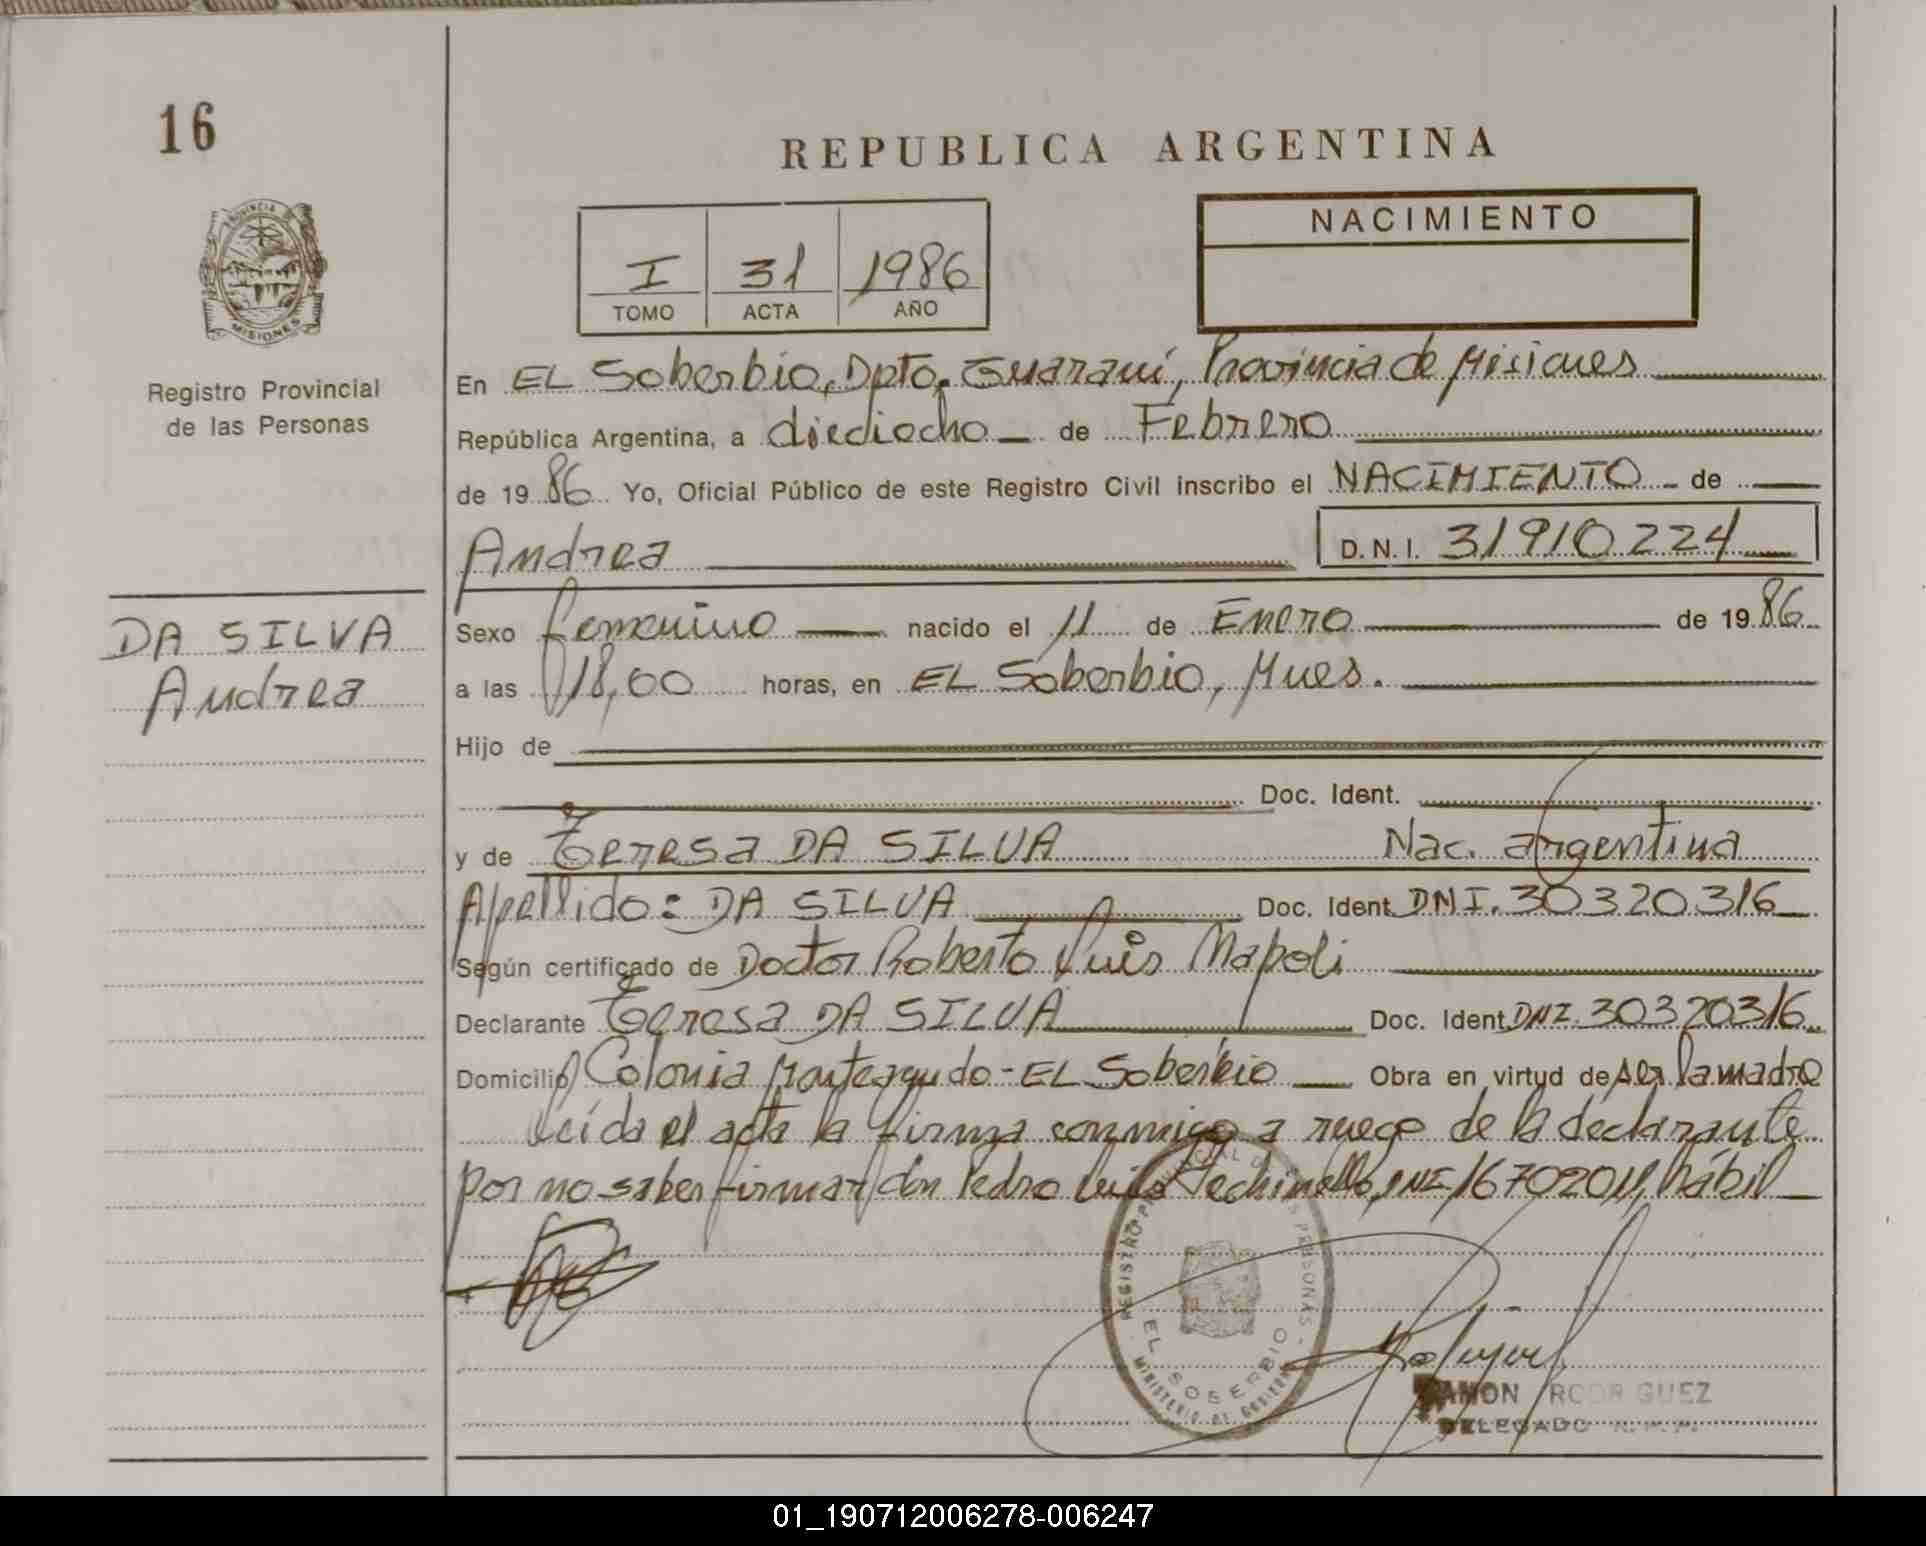 16
REPUBLICA ARGENTINA
PROVINCIA DE
MISIONES
Registro Provincial
de las Personas
I 31 1986
TOMO ACTA AÑO
NACIMIENTO
En EL Soberbio, Dpto. Guaraní, Provincia de Misiones
República Argentina, a dieciocho de Febrero
de 1986 Yo, Oficial Público de este Registro Civil inscribo el NACIMIENTO de
Andrea D.N.I. 31910224
DA SILVA
Andrea
Sexo femenino nacido el 11 de Enero de 1986
a las 18,00 horas, en EL Soberbio, Mnes.
Hijo de
Doc. Ident.
y de Teresa DA SILVA Nac. argentina
Apellido: DA SILVA Doc. Ident. DNI. 30320316
Según certificado de Doctor Roberto Luis Napoli
Declarante Teresa DA SILVA Doc. Ident. DNI. 30320316
Domicilio Colonia Monteagudo - EL Soberbio Obra en virtud de ser la madre
Leída el acta la firma conmigo a ruego de la declarante
por no saber firmar don Pedro Luis DNI 16702011, hábil
REGISTRO PROVINCIAL DE LAS PERSONAS
EL SOBERBIO
MINISTERIO DE GOBIERNO
RAMON RODRIGUEZ
DELEGADO R. P. P.
01_190712006278-006247